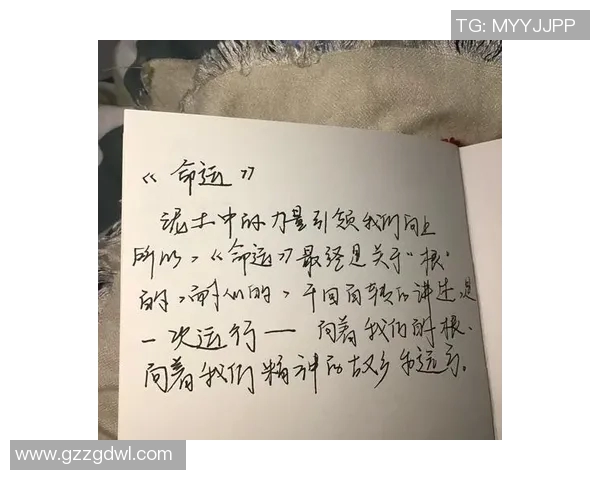 TG: MYYJJPP
《命运》
泥土中的力量引领我们向上
所以，《命运》最终是关于“根”
的，耐人的，千回百转的讲述，是
一次运行——向着我们的根、
向着我们精神的故乡的运行。
www.gzzgdwl.com